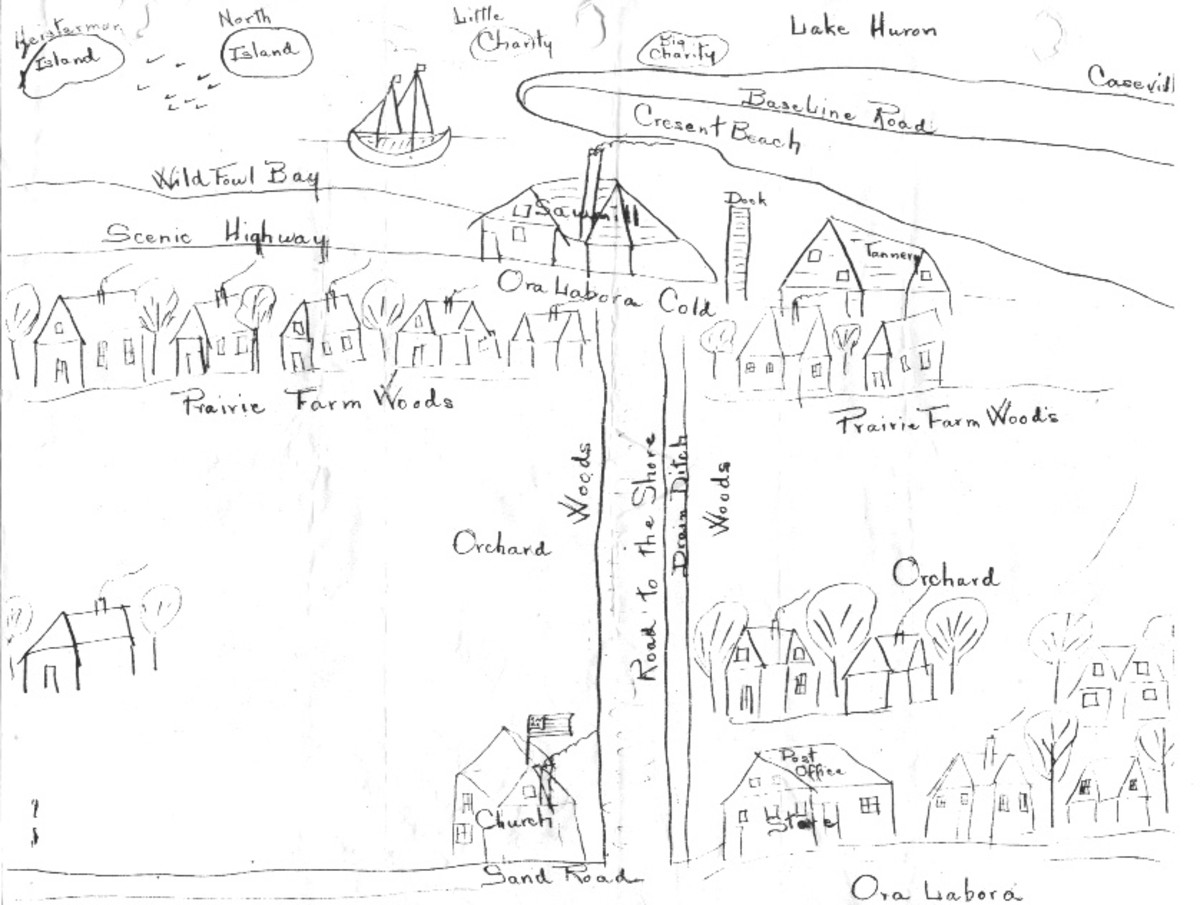 Heisterman
Island
North
Island
Little
Charity
Big
Charity
Lake Huron
Casevill
BaseLine Road
Cresent Beach
Wild Fowl Bay
Scenic Highway
Sawmill
Dock
Tannery
Ora Labora Cold
Prairie Farm Woods
Prairie Farm Woods
Woods
Road to the Shore
Drain Ditch
Woods
Orchard
Orchard
Church
Post
Office
Store
Sand Road
Ora Labora